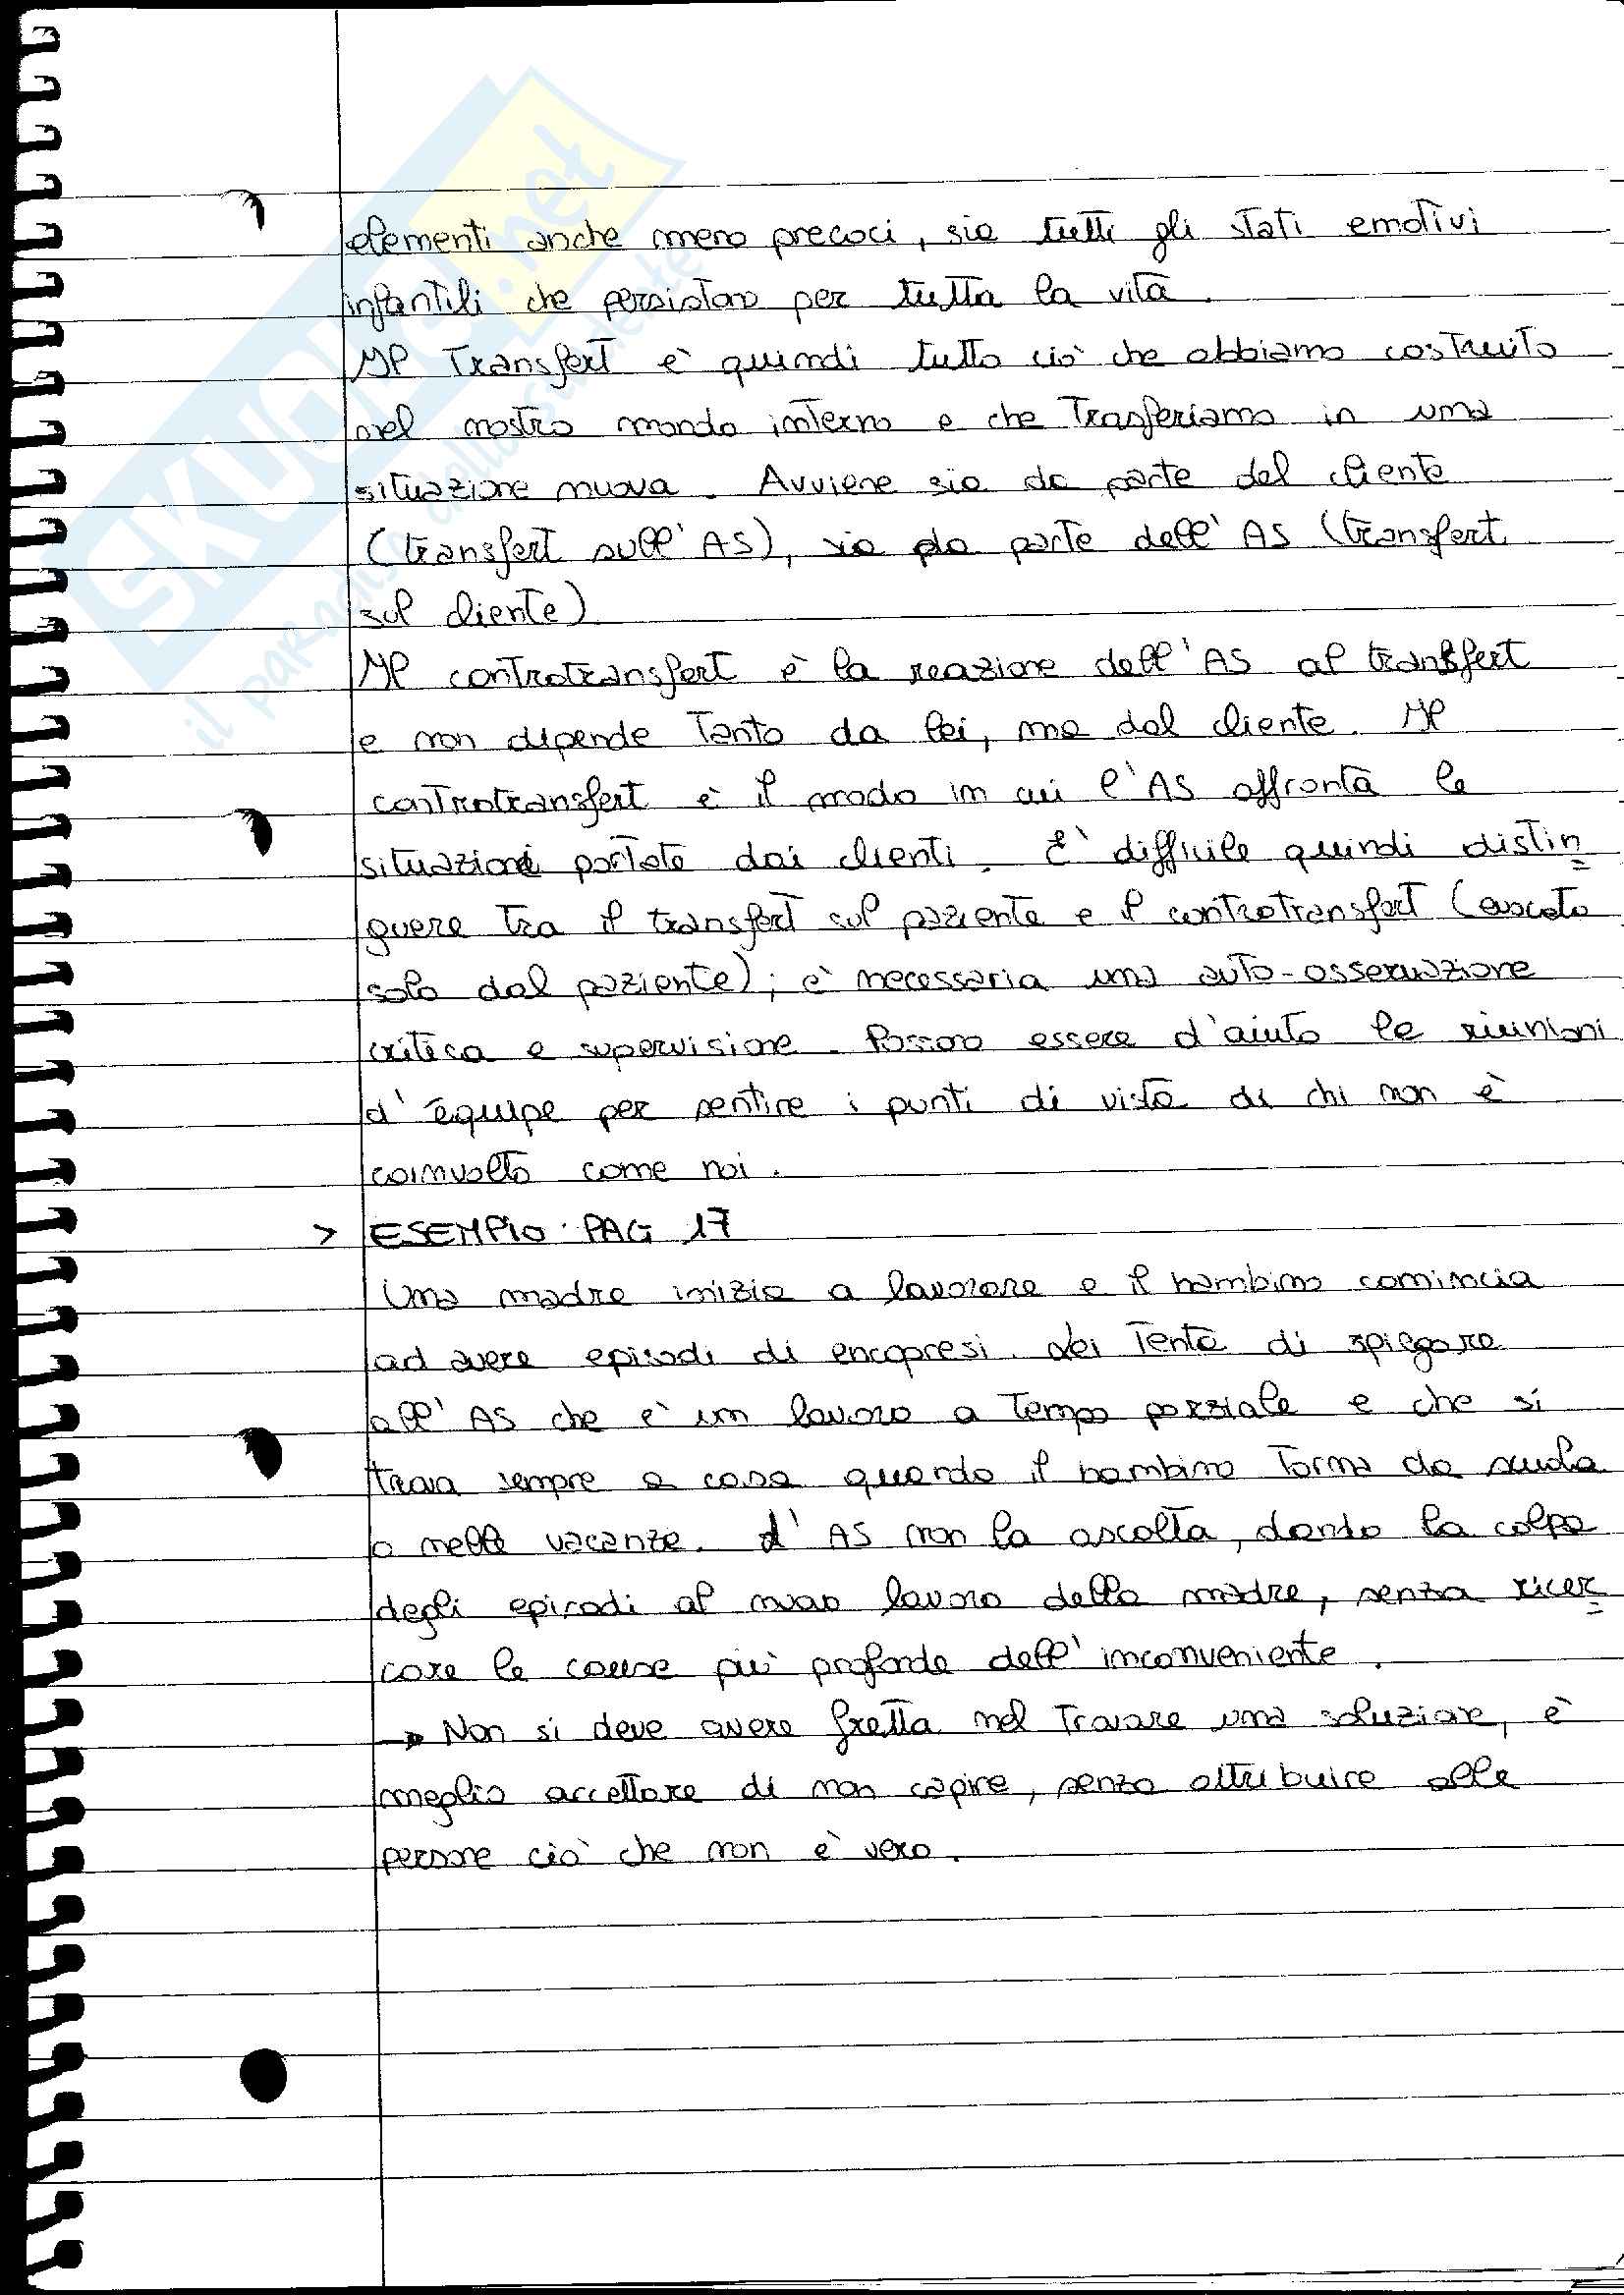 elementi anche meno precoci, sia tutti gli stati emotivi
infantili che persistono per tutta la vita.
Il Transfert è quindi tutto ciò che abbiamo costruito
nel nostro mondo interno e che trasferiamo in una
situazione nuova. Avviene sia da parte del cliente
(transfert sull'AS), sia da parte dell'AS (transfert
sul cliente)
Il controtransfert è la reazione dell'AS al transfert
e non dipende tanto da lei, ma dal cliente. Il
controtransfert è il modo in cui l'AS affronta le
situazioni portate dai clienti. E' difficile quindi distin=
guere tra il transfert sul paziente e il controtransfert (
solo dal paziente); è necessaria una auto-osservazione
critica e supervisione. Possono essere d'aiuto le riunioni
d'équipe per sentire i punti di vista di chi non è
coinvolto come noi.
> ESEMPIO: PAG 17
Una madre inizia a lavorare e il bambino comincia
ad avere episodi di encopresi. Lei tenta di spiegare
all'AS che è un lavoro a tempo parziale e che si
trova sempre a casa quando il bambino torna da scuola
o nelle vacanze. L'AS non la ascolta, dando la colpa
degli episodi al nuovo lavoro della madre, senza ricer=
care le cause più profonde dell'inconveniente.
→ Non si deve avere fretta nel trovare una soluzione, è
meglio accettare di non capire, senza attribuire alle
persone ciò che non è vero.
SKUOLA.net
il paradiso dello studente